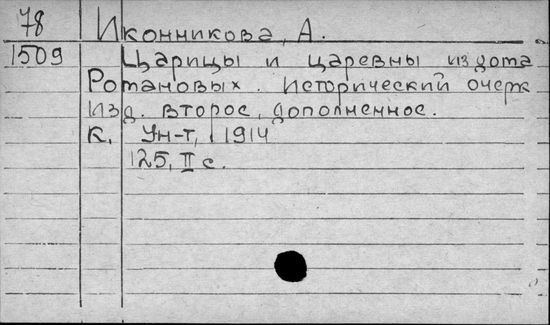 78 Иконникова, А.
1509 Царицы и царевны из дома
Романовых. Исторический очерк
Изд. второе, дополненное.
К. Ун-т, 1914
125, II с.